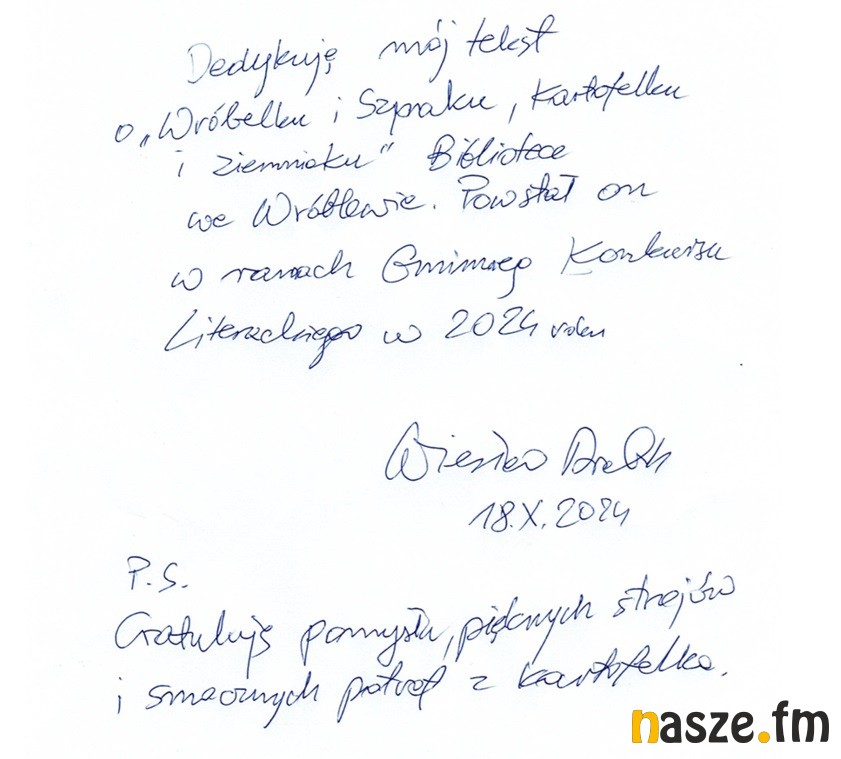 Dedykuję mój tekst
o „Wróbelku i Szpraku, Kartofelku
i ziemniaku” Bibliotece
we Wróblewie. Powstał on
w ramach Gminnego Konkursu
Literackiego w 2024 roku
Wiesław
18.X.2024
P.S.
Gratuluję pomysłu, pięknych strojów
i smacznych potraw z kartofelka.
nasze.fm